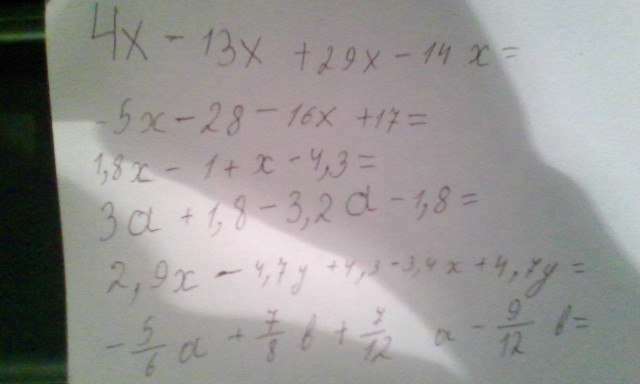 4x - 13x + 29x - 14x =
-5x - 28 - 16x + 17 =
1,8x - 1 + x - 4,3 =
3a + 1,8 - 3,2a - 1,8 =
2,9x - 4,7y + 4,3 - 3,4x + 4,7y =
-5/6 a + 7/8 b + 7/12 a - 9/12 b =